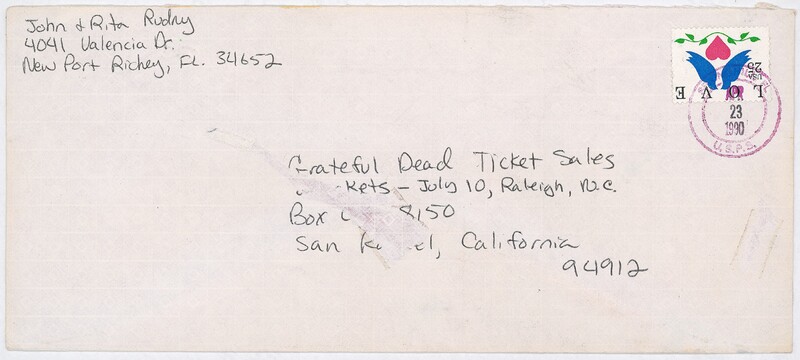 John & Rita Rudny
4041 Valencia Dr.
New Port Richey, FL. 34652
LOVE
USA
25
23
1990
U.S.P.S.
Grateful Dead Ticket Sales
kets - July 10, Raleigh, N.C.
Box 8150
San l, California
94912